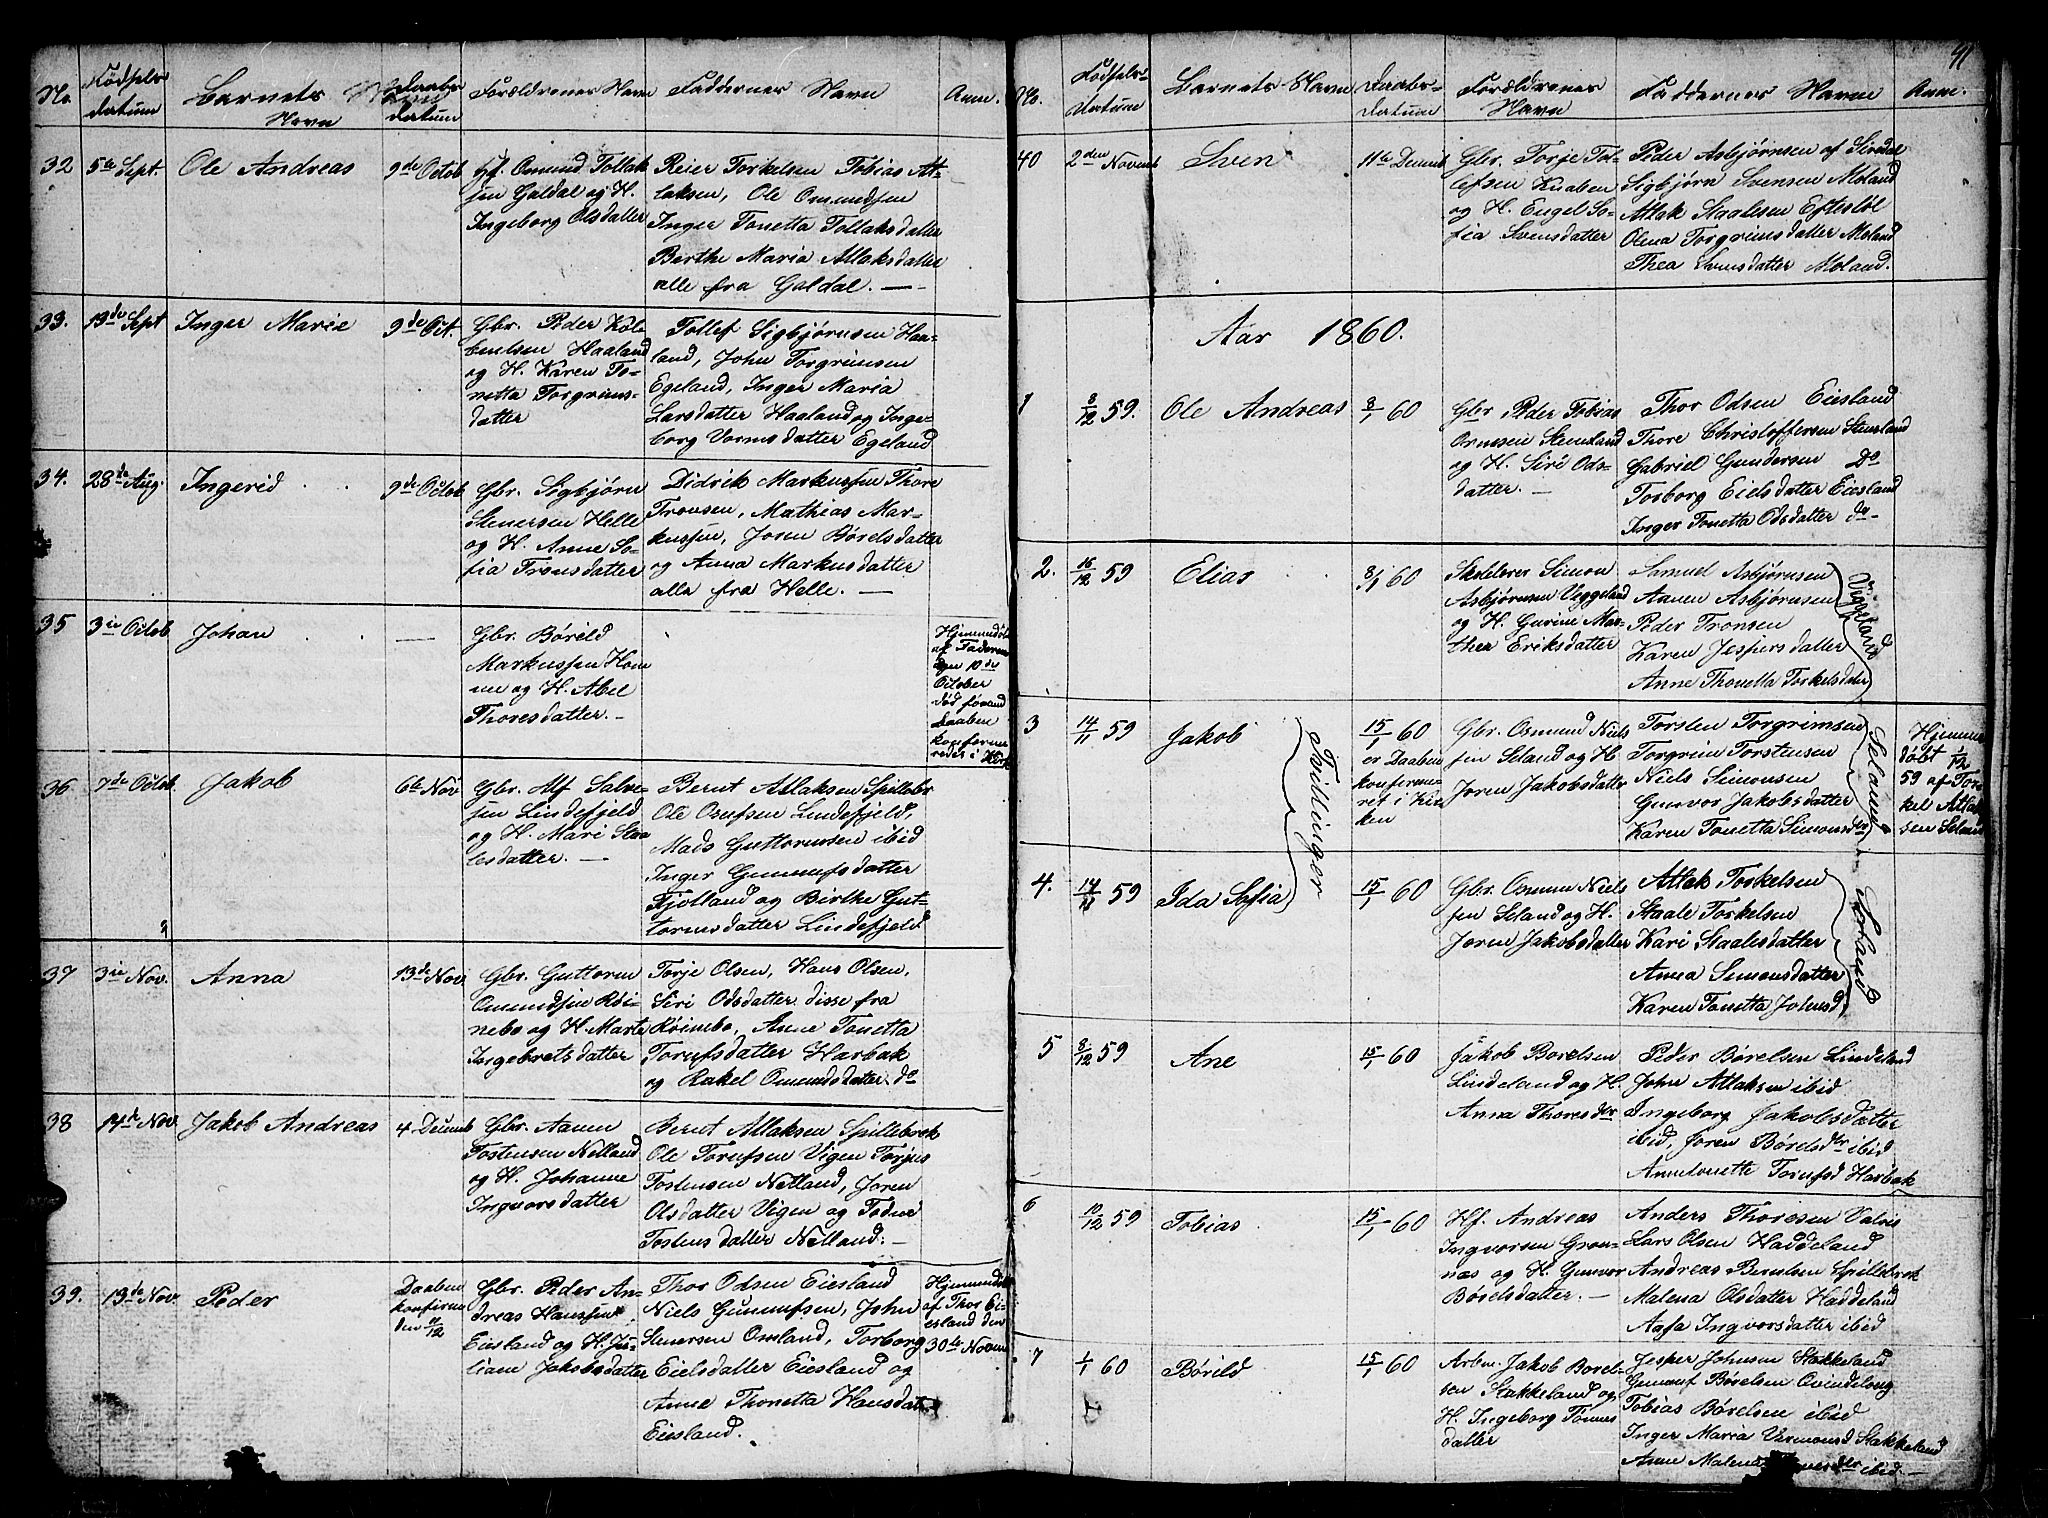 No.
Fødsels datum
Barnets Navn
Daabs datum
Forældrenes Navn
Faddernes Navn
Anm.
32
5te Sept.
Ole Andreas
9de Octob
Hf. Omund Tollak
sen Galdal og H.
Ingeborg Olsdatter
Reier Torkelsen Tobias At-
laksen, Ole Omundsen
Inger Tonetta Tollaksdatter
Berthe Maria Atlaksdatter
alle fra Galdal. —
33.
13de Sept
Inger Marie
9de Oct.
Gbr. Peder
Haaland
og H. Karen To-
netta Torgrims-
datter
Tollef Sigbjørnsen Haa-
land, John Torgrimsen
Egeland, Inger Maria
Larsdatter Haaland og Inge-
borg Vormsdatter Egeland
34.
28de Aug.
Ingerid
9de Octob
Gbr. Sigbjørn
Stenersen Helle
og H. Anne So-
fia Tronsdatter
Didrik Markussen Thore
Tronsen, Mathias Mar-
kussen, Joren Børelsdatter
og Anna Markusdatter
alle fra Helle. —
35
3ie Octob
Johan
—
Gbr. Børild
Markussen Hom
me og H. Abel
Thoresdatter. —
Hjemmedøbt
af Faderen
den 10de
October
død førend
Daaben
konfirme
redes i Kirk
36
7de Octob
Jakob
6te Nov
Gbr. Alf Salve-
sen Lindefjeld
og H. Mari Staa
lesdatter. —
Bernt Atlaksen Spillebr
Ole Osufsen Lindefjeld,
Mads Guttormsen ibid
Inger Gunnufsdatter
Fjotland og Birthe Gut-
tormsdatter Lindefjeld
37
3ie Nov.
Anna
13de Nov
Gbr. Guttorm
Omundsen Røi-
nebo og H. Marte
Ingebretsdatter
Torje Olsen, Hans Olsen,
Siri Odsdatter disse fra
Røinebo, Anne Tonetta
Torufsdatter Harbak
og Rakel Omundsdatter do
38
14de Nov.
Jakob Andreas
4 Decemb
Gbr. Aanen
Tostensen Netland
og H. Johanne
Ingvorsdatter
Bernt Atlaksen Spillebrok
Ole Torufsen Vigen Torjus
Tostensen Netland, Joren
Olsdatter Vigen og Todne
Tostensdatter Netland. —
39.
13de Nov.
Peder
Daaben
konfirm
den 4/12
Gbr. Peder An-
dreas Hanssen
Eiesland og H. Ju-
liane Jakobsdatter
Thor Odsen Eiesland
Niels Gunnufsen, John
Stenersen Omland, Torborg
Eielsdatter Eiesland og
Anne Thonetta Hansdatt
Eiesland.
Hjemmedøbt
af Thor Ei-
esland den
30te Novem
41
No.
Fødsels-
datum
Barnets Navn
Daabs-
datum
Forældrenes
Navn
Faddernes Navn
Anm.
40
2den Novemb
Sven
11te Decemb
Gbr. Torje Tol-
lefsen Knaben
og H. Engel So-
fia Svensdatter
Peder Asbjørnsen af Sirdal
Sigbjørn Svensen Moland
Atlak Staalesen Eftestøl
Olena Torgrimsdatter Moland
Thea Svensdatter Moland.
Aar 1860.
1
8/12 59.
Ole Andreas
8/1 60
Gbr. Peder Tobias
Ormsen Stensland
og H. Siri Ods-
datter. —
Thor Odsen Eiesland
Thore Christoffersen Stensland
Gabriel Gundersen Do
Torborg Eielsdatter Eiesland
Inger Tonetta Odsdatter do-
2.
16/12 59
Elias
8/1 60
Skolelærer Simon
Asbjørnsen Veggeland
og H. Gurine Mar-
thea Eriksdatter
Samuel Asbjørnsen
Aanen Asbjørnsen
Peder Tronsen
Karen Jespersdatter
Anne Thonetta Torkelsdater
Veggeland
3
14/11 59
Jakob
Tvillinger
15/1 60
er Daaben
konfirme-
ret i Kir-
ken
Gbr. Osmund Niels
sen Seland og H
Joren Jakobsdatter
Torsten Torgrimsen
Torgrim Torstensen
Niels Simonsen
Gunvor Jakobsdatter
Karen Tonetta Simonsdtr
Seland
Hjemme
døbt 1/12
59 af Tor-
kel Atlak
sen Seland
4.
14/11 59
Ida Sofia
15/1 60
Gbr. Osmun Niels
sen Seland og H.
Joren Jakobsdatter
Atlak Torkelsen
Staale Torkelsen
Kari Staalesdatter
Anna Simonsdatter
Karen Tonetta Johnsd.
Seland
5
8/12 59
Ane
15/1 60
Jakob Borelsen
Lindeland og H.
Anna Thoresdtr
Peder Børelsen Lindeland
John Atlaksen ibid
Ingeborg Jakobsdatter
ibid, Joren Børelsdtr ibid
Annetonette Torufsd Harbak
6
10/12 59
Tobias
15/1 60
Hf. Andreas
Ingvorsen Gron-
næs og H. Gunvor
Børelsdatter. —
Anders Thoresen
Lars Olsen Haddeland
Andreas Berntsen Spillebrok
Malena Olsdatter Haddeland
Aasa Ingvorsdatter ibid
7
1/1 60
Børild
15/1 60
Arbm. Jakob Borel-
sen Stakkeland og
H. Ingeborg Tønnes
datter
Jesper Johnsen Stakkeland
Gunnuf Børelsen Qvindelong
Tobias Børelsen ibid
Inger Maria Vermunsd Stakkeland
Anne Malena ibid. —